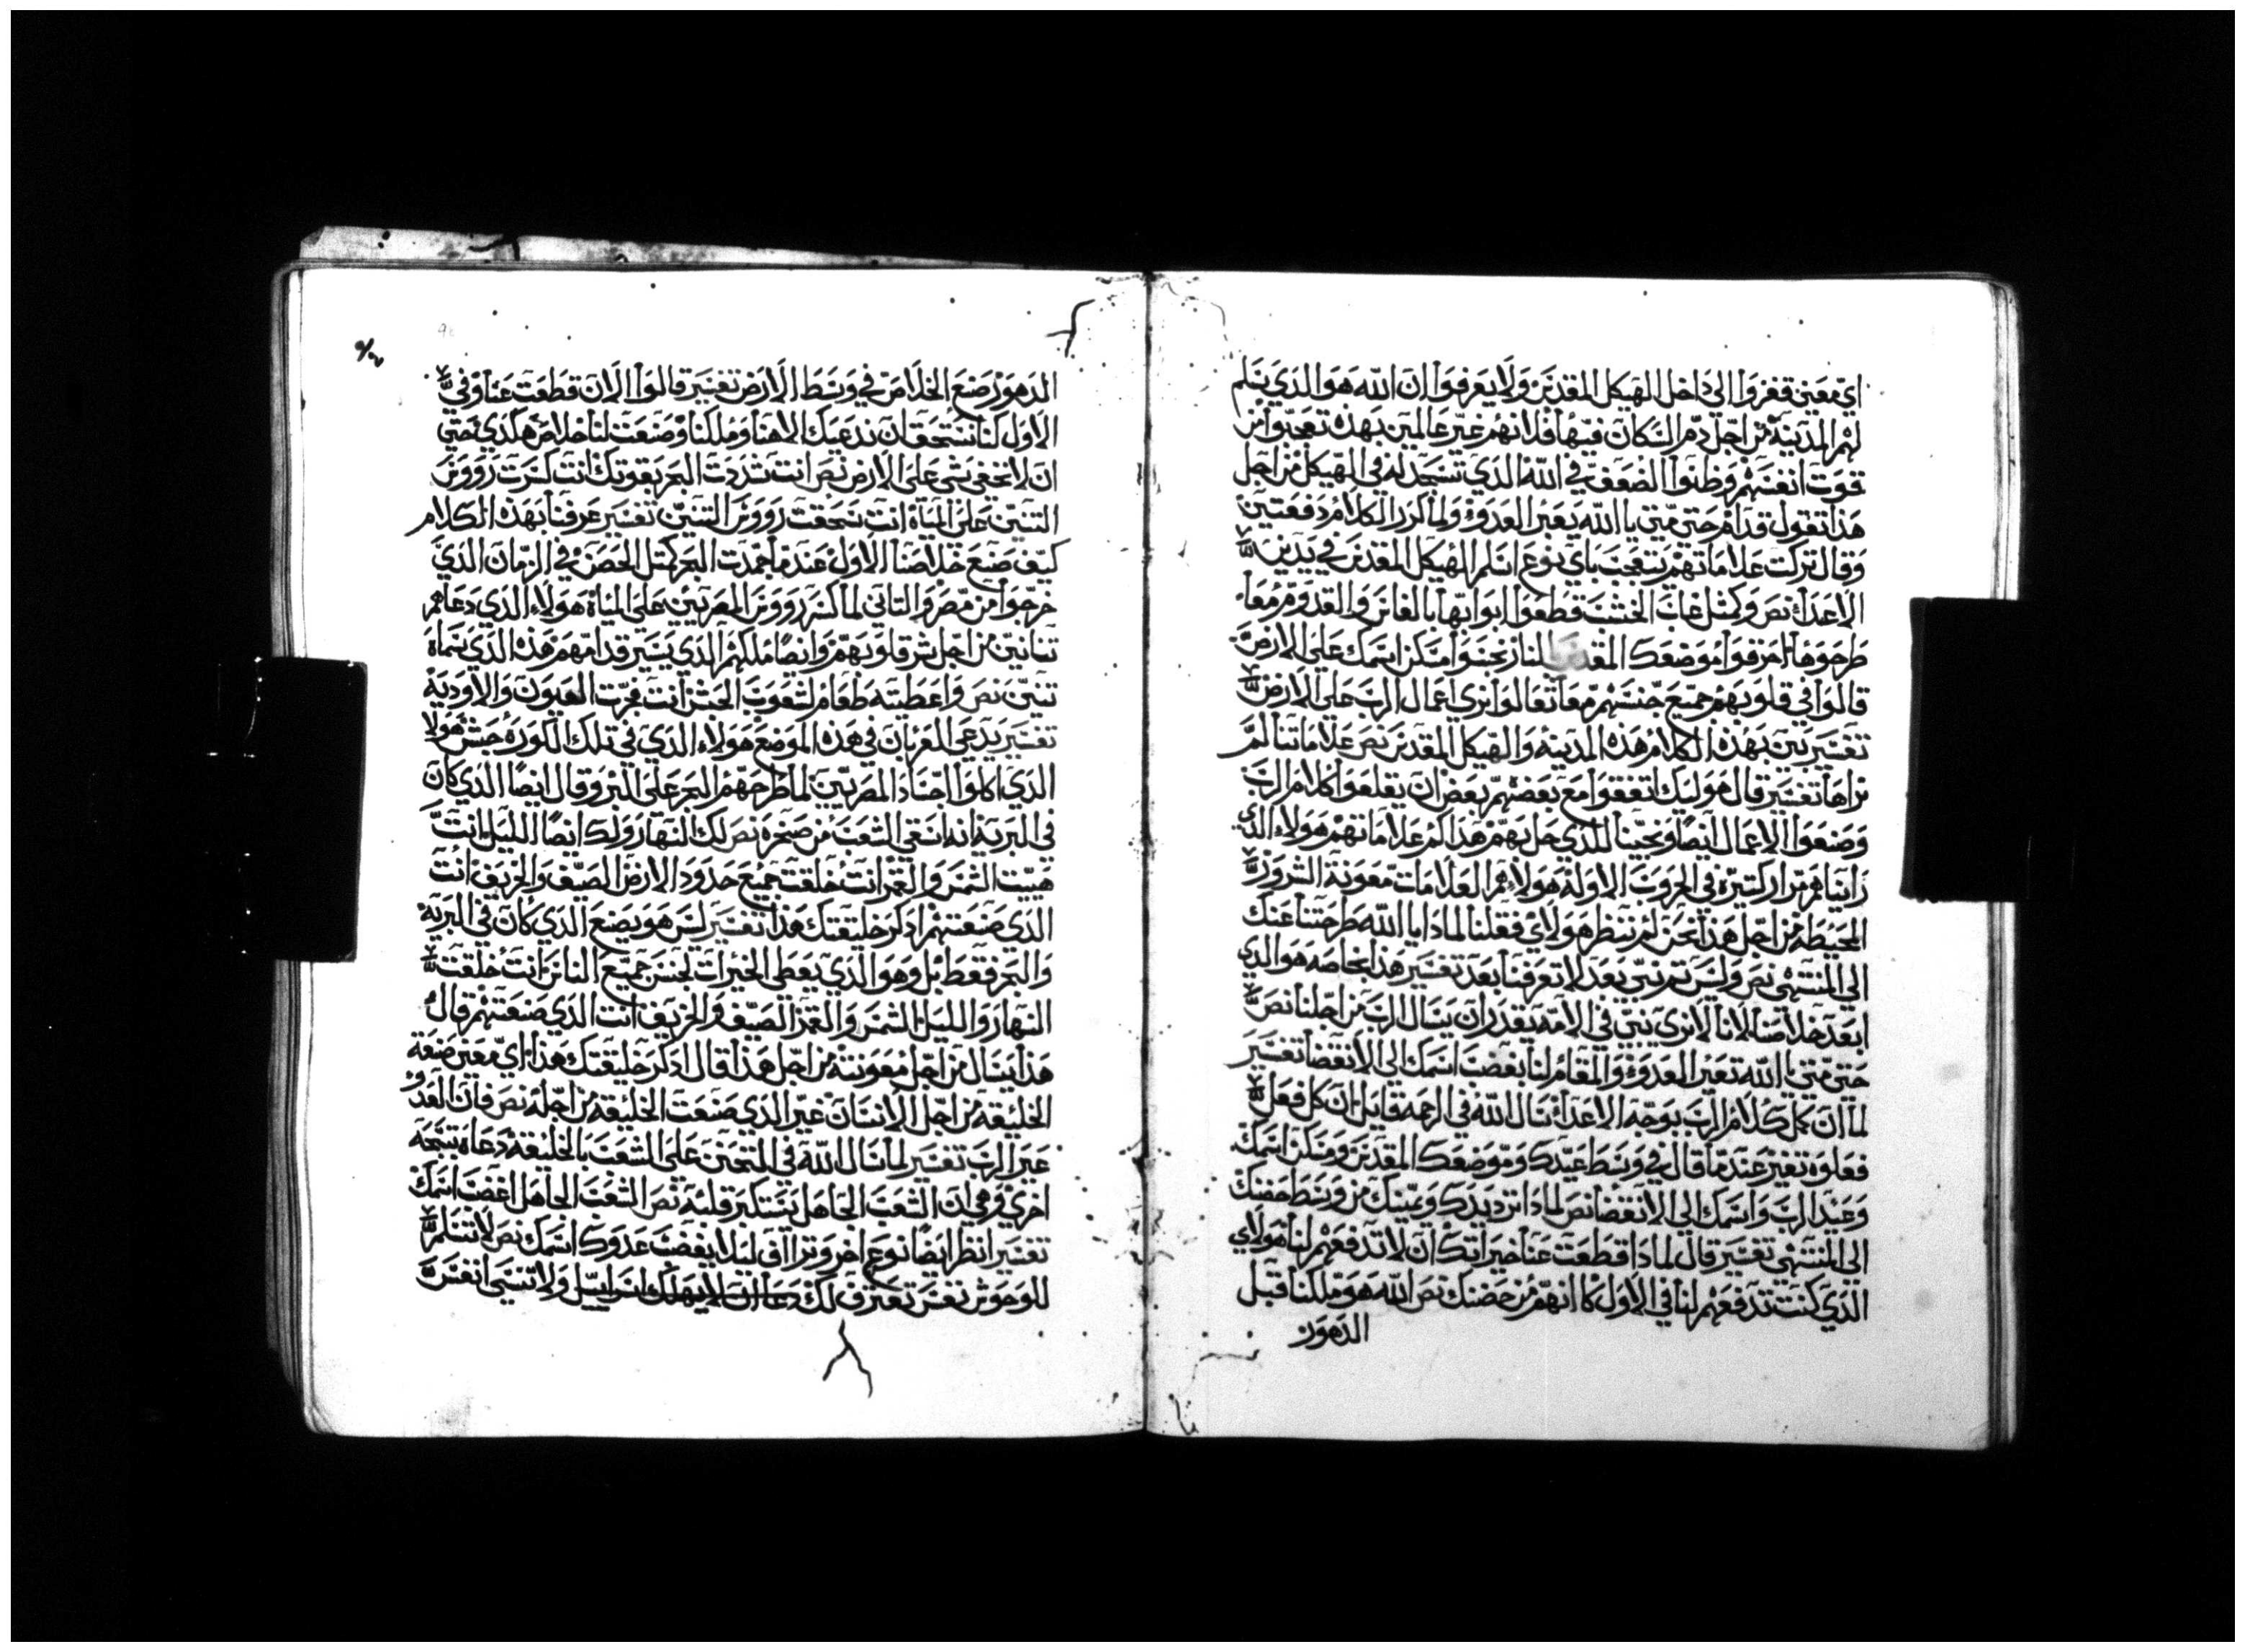 اي معين قفزوا الي داخل الهيكل المقدس ولا يعرفوا ان الله هو الذي يسلم
لهم المدينه من اجل دم السكان فيها فلانهم غير عالمين بهذه تعجبوا من
قوت انفسهم وظنوا الضعف في الله الذي تسجد له في الهيكل من اجل
هذا تقول قدام حتي متي يا الله يعير العدوؤ ولما كرر الكلام دفعتين
وقال تركت علاماتهم يتعجب باي نوع اسلم الهيكل المقدس في يدين
الاعدا نص وكمثل غاب الخشب قطعوا ابوابها بالفاس والقدوم معا
طرحوها احرقوا موضعك المقدس بالنار نجسوا مسكن اسمك علي الارض
قالوا في قلوبهم جميع جنسهم معا تعالوا نري اعمال الرب علي الارض
تفسير بين بهذه الكلام هذه المدينه والهيكل المقدس نص علاماتنا لم
نراها تفسير قال هوليك اتفقوا مع بعضهم بعض ان يقلعوا كلام الرب
وصنعوا الاعمال ايضا ونحينا للذي حل بهم هذا لم علاماتهم هولاء الذي
راينا هم مرار كتيره في الحروب الاوله هولاء هم العلامات معونه الشرور
المحيطه من اجل هذا نحن لم ننظر هولاي فقعلنا لماذا يا الله طرحتنا عنك
الي المنتهي نص وليس تم نبي بعد لا تعرفنا بعد تفسير هذا بخاصه هو الذي
ابعد خلاصنا لانا لا نري نبي في الامه يقدر ان يسال الرب من اجلنا نص
حتي متي يا الله تعير العدوؤ والمقام لنا بغضب اسمك الي الانقضا تفسير
لما ان كمل كلام الرب بوجه الاعدا سال الله في الرحمه قايل ان كل فعل
فعلوه تغير عندما قال في وسط عيدك وموضعك المقدس ومسكن اسمك
وعيد الرب واسمك الي الانقضا نص لماذا ترد يدك ويمينك من وسط حضنك
الي المنتهي تفسير قال لماذا قطعت عنا خيراتك ان لا تدفعهم لنا هولاي
الذي كنت تدفعهم لنا في الاول كانهم من حضنك نص الله هو ملكنا قبل
الدهور
الدهور صنع الخلاص في وسط الارض تفسير قالوا الان قطعت عنا وفي
الاول كنا نستحق ان ندعيك الاهنا وملكنا وصنعت لنا خلاص هكذي حتي
ان لا تخفي شي علي الارض نص انت شددت البحر بقوتك انت كسرت رووس
التنين علي المياه انت سحقت رووس التنين تفسير عرفنا بهذه الكلام
كيف صنع خلاصنا الاول عندما جمدت البحر كمثل الحصن في الزمان الذي
خرجوا من مصر والتاني لما كسر رووس المصريين علي المياه هولاء الذي دعاهم
تنانين من اجل شر قلوبهم وايضا ملكهم الذي يسير قدامهم هذه الذي سماه
تنين نص واعطيته طعام لشعوب الحبش انت فجرت العيون والاوديه
تفسير يدعي الغربان في هذه الموضع هولاء الذي في تلك الكوره حبش هولا
الذي اكلوا اجساد المصريين لما طرحهم البحر علي البر وقال ايضا الذي كان
في البريه انه اسقي الشعب من صخره نص لك النهار ولك ايضا الليل انت
هييت الشمس والقمر انت خلقت جميع حدود الارض الصيف والخريف انت
الذي صنعتهم اذكر خليقتك هذا تفسير ليس هو يصنع الذي كان في البريه
والبحر فقط بل وهو الذي يعطي الخيرات لجنس جميع الناس انت خلقت
النهار والليل الشمس والقمر الصيف والخريف انت الذي صنعتهم قال
هذا يسال من اجل معونته من اجل هذا قال اذكر خليقتك هذا اي معين صنعه
الخليقه من اجل الانسان غير الذي صنعت الخليقه من اجله نص فان العدو
عير الرب تفسير لما سال الله في التحنن علي الشعب بالخليقه دعاه نتيجه
اخري وهي ان الشعب الجاهل يستكبر قلبه نص الشعب الجاهل اغضب اسمك
تفسير انظر ايضا نوع اخر وترااف ليلا يغضب عدوك اسمك نص لا تسلم
للوحوش نفس تعترف لك دعا ان لا يهلك اسراييل ولا تنسي انفس